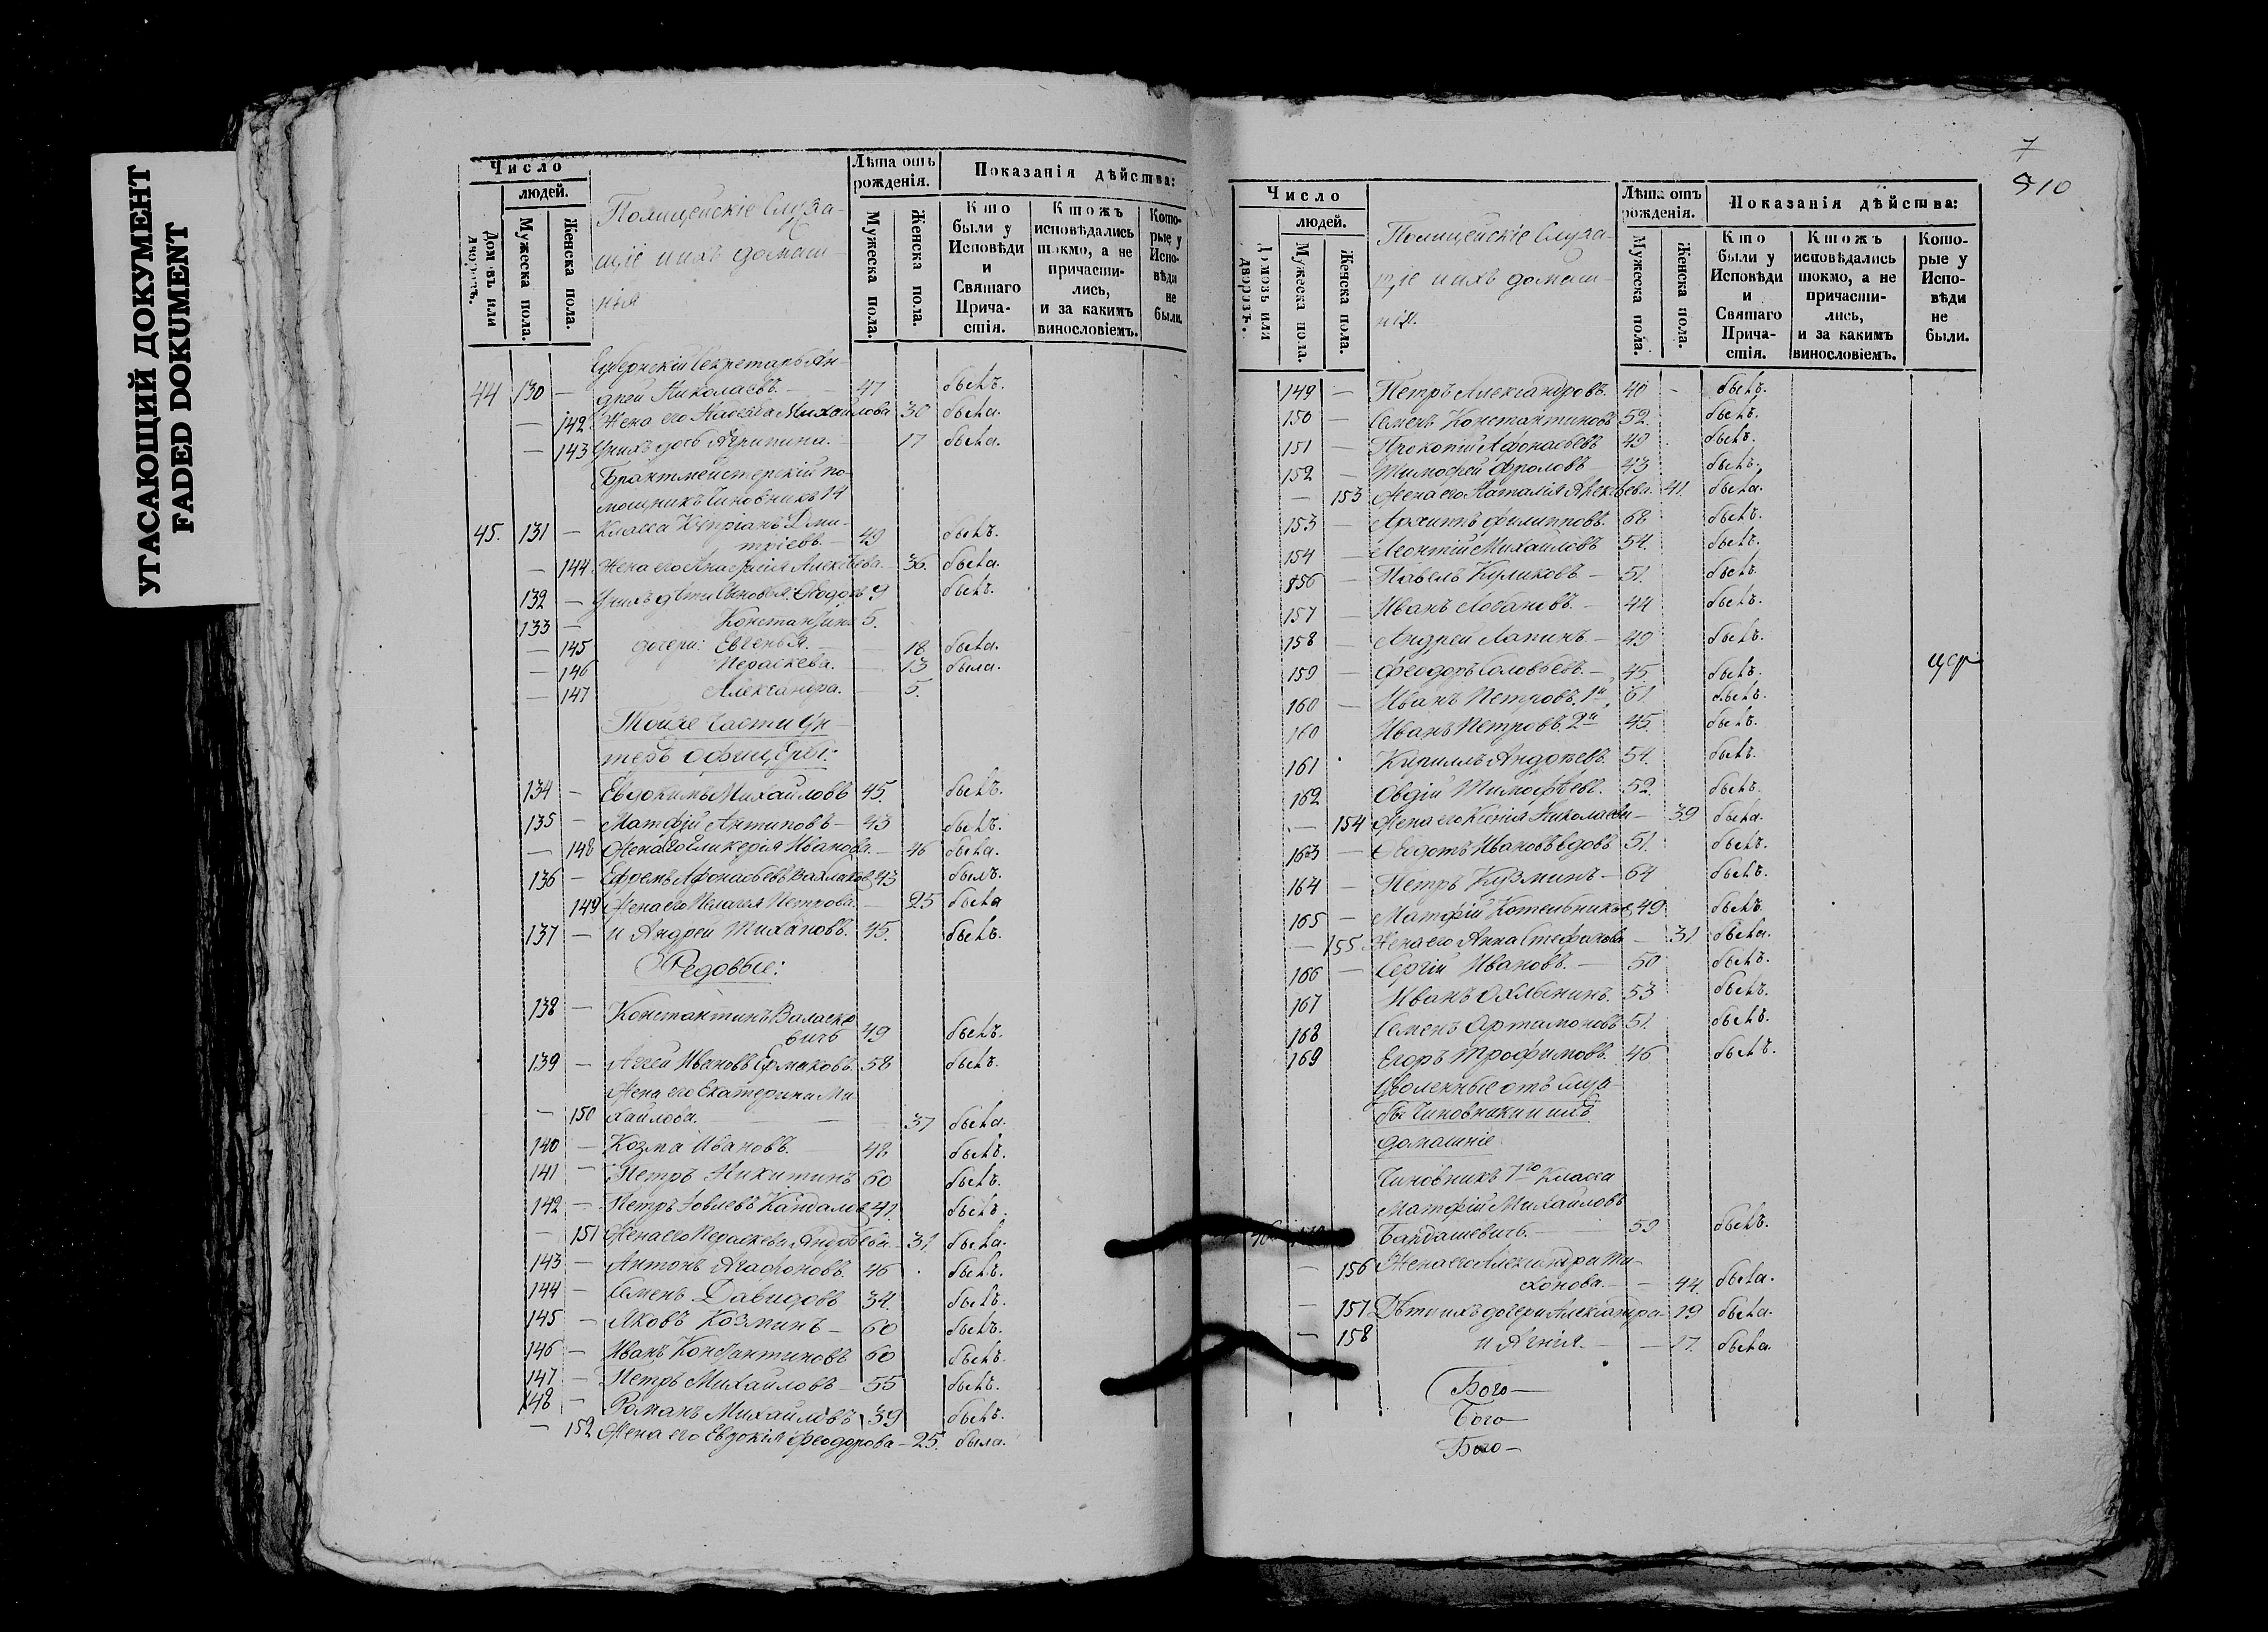 УГАСАЮЩИЙ ДОКУМЕНТ
FADED DOKUMENT
Число
людей.
Домовъ или дворовъ.
Мужеска пола.
Женска пола.
Полицейскіе Служа-
щіе и ихъ домаш-
нія
Лѣта отъ рожденія.
Мужеска пола.
Женска пола.
Показанія дѣйства:
Кто были у Исповѣди и Святаго Прича-стія.
Ктожъ исповѣдались токмо, а не причасти-лись, и за какимъ винословіемъ.
Кото-рые у Испо-вѣди не были.
Губернскій Секретарь Ан-
44 130 — дрей Николаевъ. — 47 былъ.
— 142 Жена его Надежда Михайлова 30 была.
— 143 У нихъ дочь Агрипина. — 17 была.
Брантмейстерскій по-
мощникъ Чиновникъ 14
45. 131 — Класса Кипріанъ Дми-
тріевъ. — 49 былъ.
— 144 Жена его Анастасія Алексѣева. — 36. была.
132 — У нихъ дѣти Сыновья: Ѳеодоръ 9 былъ.
133 — Константинъ 5.
— 145 дочери: Евгенья. — 18 была.
— 146 Параскева. — 13 была.
— 147 Александра. — 5.
Тойже части Ун-
теръ офицеры:
134 — Евдокимъ Михайловъ 45. былъ.
135 — Матфій Антиповъ — 43 былъ.
— 148 Жена его Гликерія Иванова. — 46 была.
136 — Ефремъ Афонасьевъ Вахлаков 43 былъ.
149 Жена его Пелагея Петрова. — 25 была
137 — и Андрей Тихановъ. 45. былъ.
Редовые:
138 — Константинъ Валаске
вичь 49 былъ.
139 — Аггей Ивановъ Ермаковъ. 58 былъ.
Жена его Екатерина Ми
— 150 хайлова. — — 37 была.
140 — Козма Ивановъ. — 48 былъ.
141 — Петръ Никитинъ 60 былъ.
142 — Петръ Іовлевъ Кандалов 41. былъ.
— 151 Жена его Параскева Андрѣева — 31. была.
143 — Антонъ Агафоновъ. 46 былъ.
144 — Семенъ Давидовъ 34. былъ.
145 — Яковъ Козминъ — 60 былъ.
146 — Иванъ Константиновъ 60 былъ.
147 — Петръ Михайловъ 55 былъ.
148 — Романъ Михайловъ 39 былъ.
— 152 Жена его Евдокія Феодорова — 25. была.
7
10
Число
людей.
Домовъ или дворовъ.
Мужеска пола.
Женска пола.
Полицейскіе Служа-
щіе и ихъ домаш-
нія.
Лѣта отъ рожденія.
Мужеска пола.
Женска пола.
Показанія дѣйства:
Кто были у Исповѣди и Святаго Прича-стія.
Ктожъ исповѣдались токмо, а не причасти-лись, и за какимъ винословіемъ.
Кото-рые у Испо-вѣди не были.
149 — Петръ Александровъ. 40 — былъ.
150 — Семенъ Константиновъ 52. былъ.
151 — Прокопій Афонасьевъ 49 былъ.
152 — Тимофей Фроловъ — 43 былъ.
— 153 Жена его Наталія Алексѣева. 41. была.
153 — Архипъ Филипповъ. 68 былъ.
154 — Леонтій Михайловъ 54. былъ.
156 — Павелъ Куликовъ. — 51. былъ.
157 — Иванъ Лобановъ. — 44 былъ.
158 — Андрей Лапинъ. — 49 былъ.
159 — Феодоръ Соловьевъ. — 45. былъ.
160 — Иванъ Петровъ. 1й 61. былъ.
160 Иванъ Петровъ. 2й 45. былъ.
161 Кирилъ Андреевъ. 54. былъ.
162 Овдій Тимофѣевъ. 52. былъ.
— 154 Жена его Ксенія Николаева — 39 была.
163 — Ѳедотъ Ивановъ вдовъ 51. былъ.
164 — Петръ Кузминъ — 64 былъ.
165 — Матфій Котельников 49 былъ.
— 155 Жена его Анна Стефанова — 31. была.
166 — Сергій Ивановъ. — 50 былъ.
167 Иванъ Охлынинъ. 53 былъ.
168 Семенъ Артамоновъ 51. былъ.
169 Егоръ Трофимовъ. 46 былъ.
Уволенные отъ служ-
бы Чиновники и ихъ
домашніе
Чиновникъ 7го Класса
Матфій Михайловъ
Бандашевичь. — 59 былъ.
— 156 Жена его Александра Ти-
хонова. — — 44. была.
— 157 Дѣти ихъ дочери Александра — 19 была.
— 158 и Агнія. — — 17. была.
Бого —
Бого —
Бого —